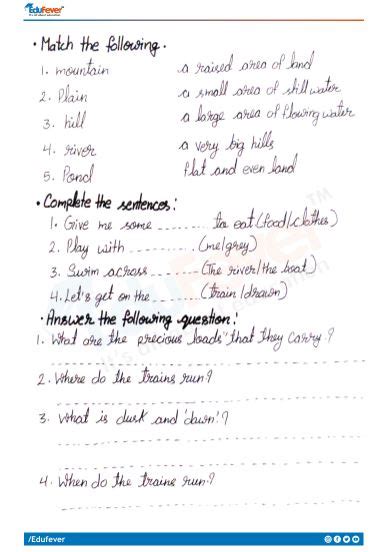 EduFever
• Match the following.
1. mountain a raised area of land
2. Plain a small area of still water
3. hill a large area of flowing water
4. river a very big hills
5. Pond flat and even land
• Complete the sentences:
1. Give me some ......... to eat (food/clothes)
2. Play with .......... (me/grey)
3. Swim across ........ (The river/the boat)
4. Let's get on the ........ (train/drawn)
• Answer the following question:
1. What are the precious loads" that they carry?
2. Where do the trains run?
3. What is dusk and 'dawn'?
4. When do the trains run?
/Edufever